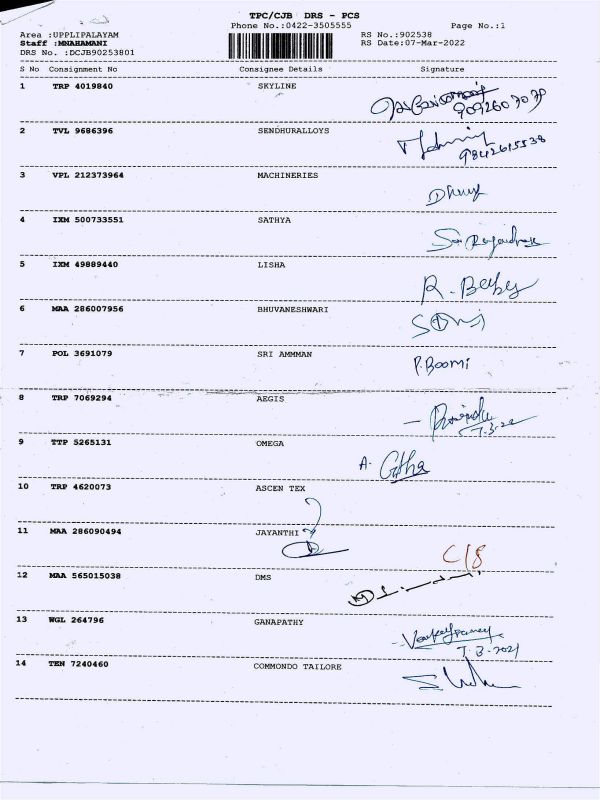 TPC/CJB DRS - PCS
Phone No.:0422-3505555 Page No.:1
Area :UPPLIPALAYAM RS No.:902538
Staff :MNAHAMANI RS Date:07-Mar-2022
DRS No. :DCJB90253801
S No Consignment No Consignee Details Signature
1 TRP 4019840 SKYLINE
9092607070
2 TVL 9686396 SENDHURALLOYS
9842615538
3 VPL 212373964 MACHINERIES
4 IXM 500733551 SATHYA
5 IXM 49889440 LISHA
R.
6 MAA 286007956 BHUVANESHWARI
7 POL 3691079 SRI AMMMAN P.Boomi
8 TRP 7069294 AEGIS
7.3.22
9 TTP 5265131 OMEGA
A. Githa
10 TRP 4620073 ASCEN TEX
11 MAA 286090494 JAYANTHI
C/8
12 MAA 565015038 DMS
13 WGL 264796 GANAPATHY
7.3.2021
14 TEN 7240460 COMMONDO TAILORE